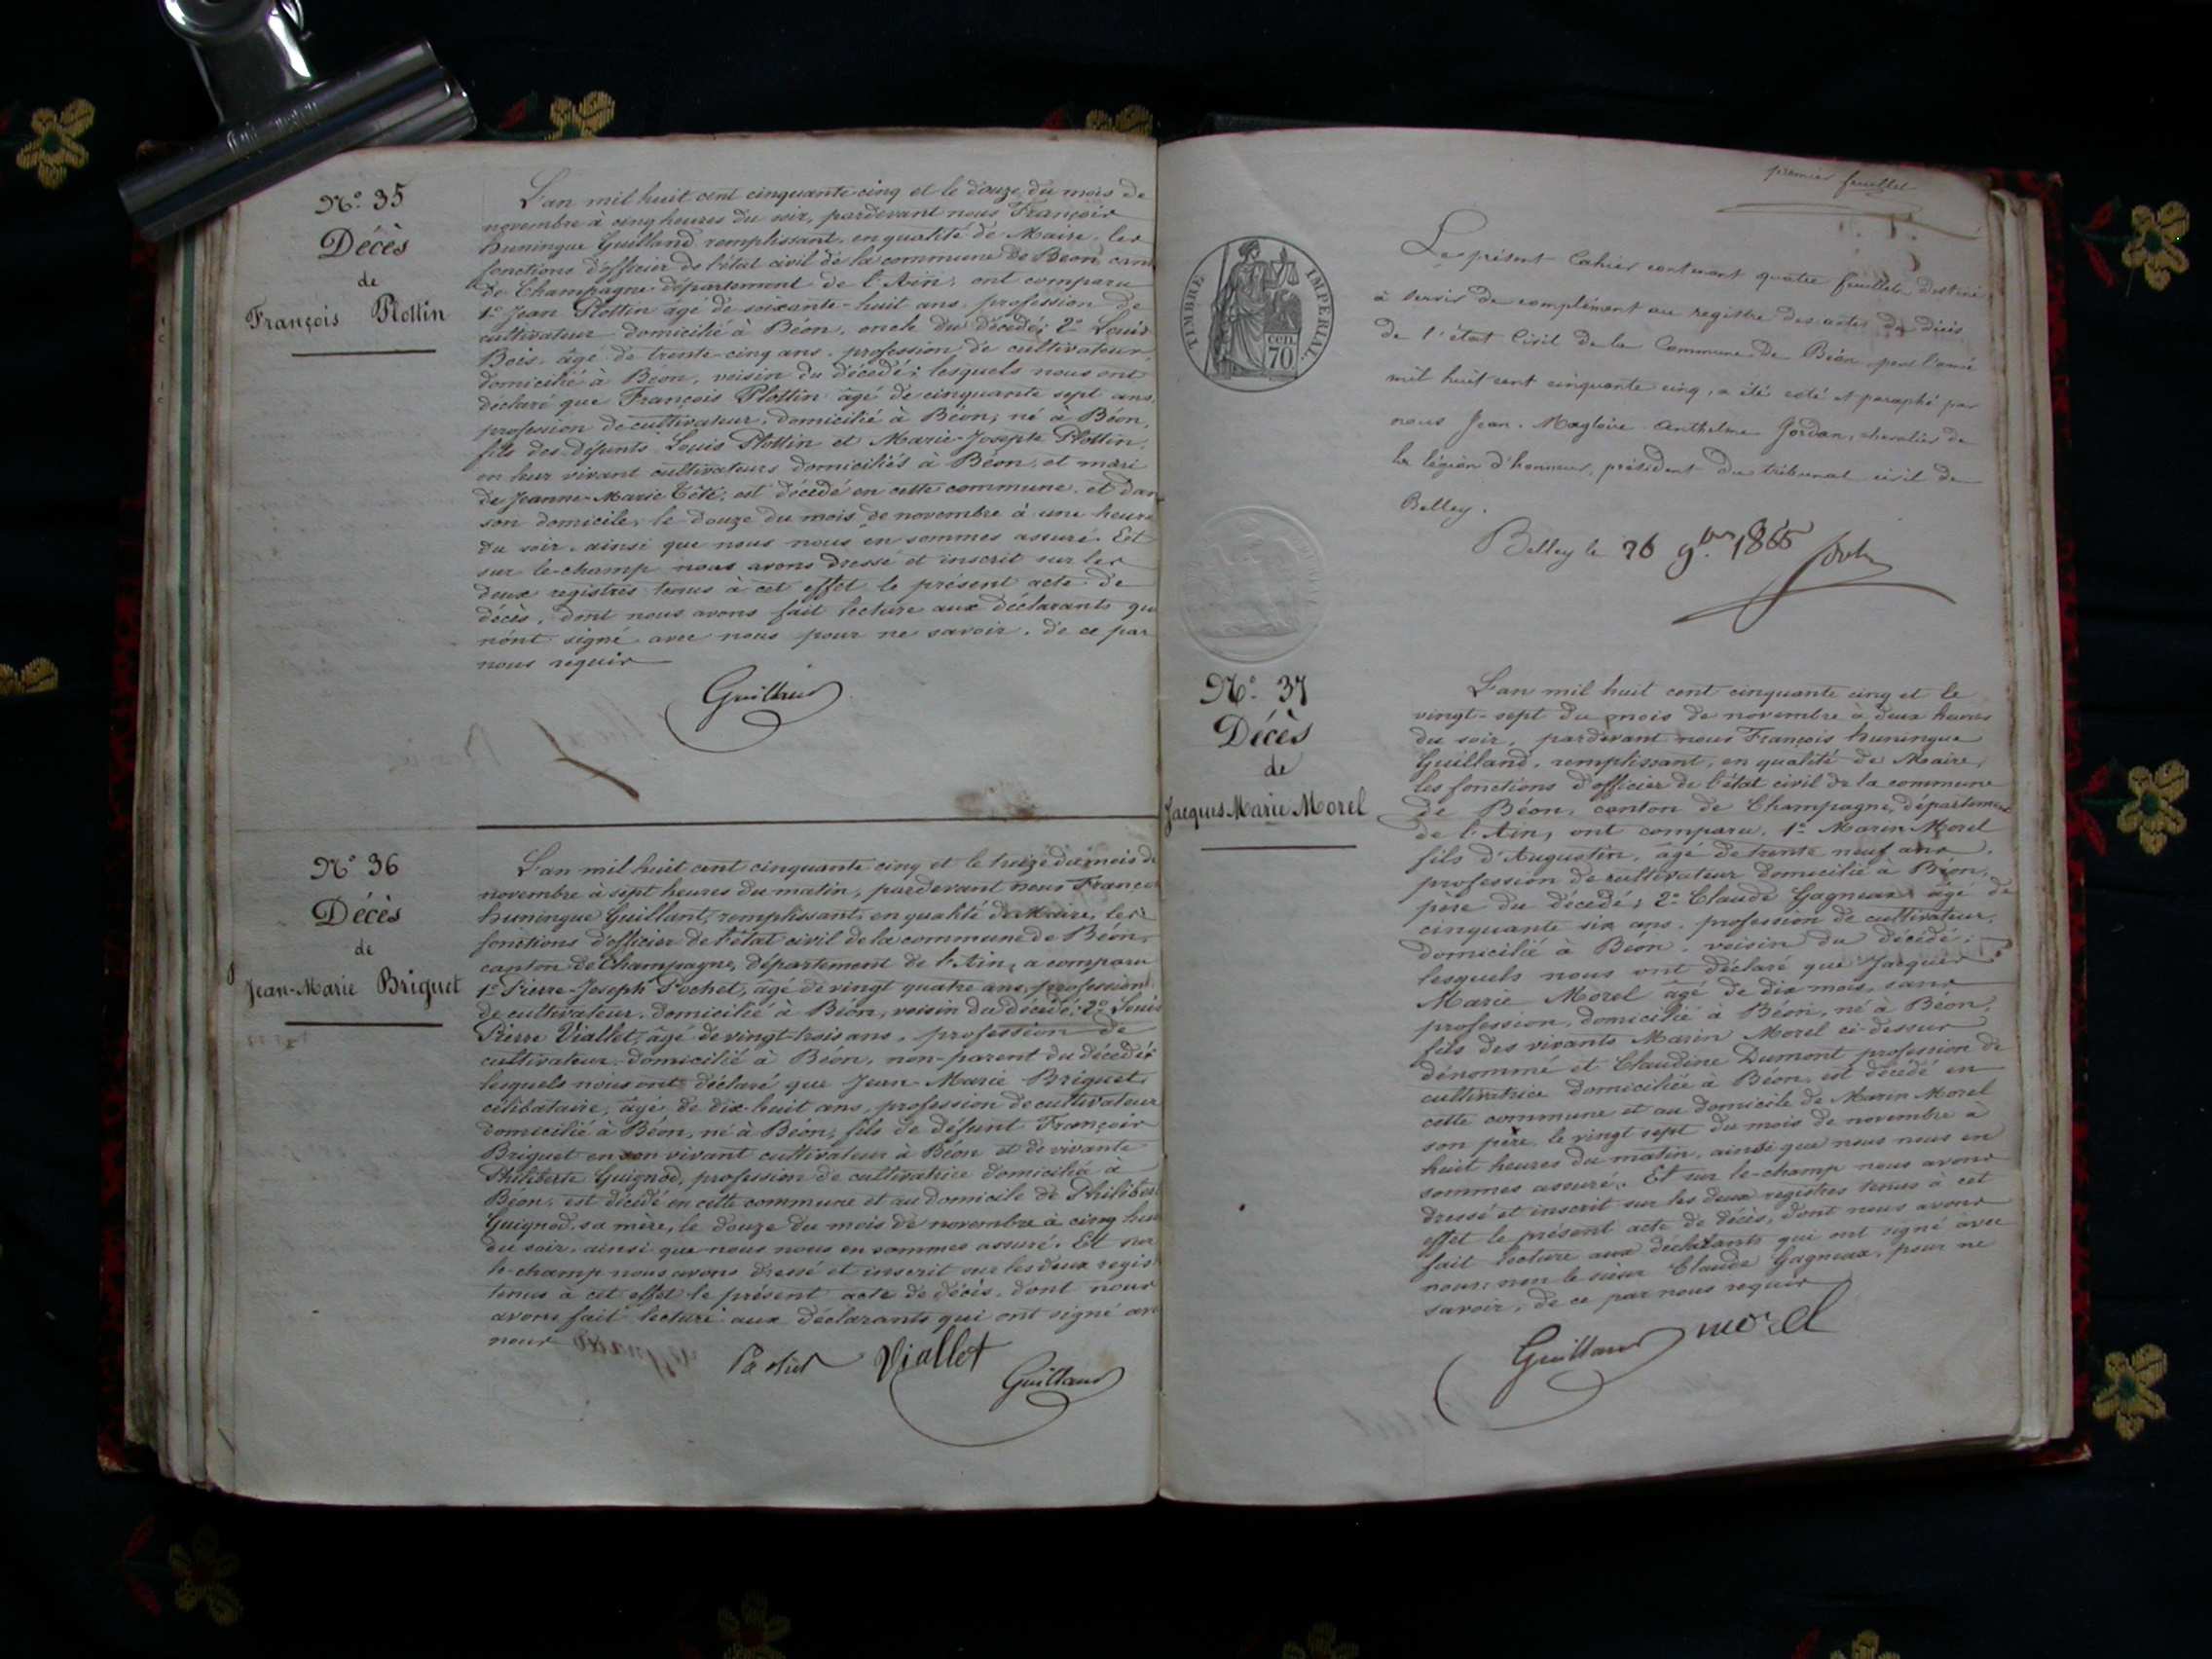 Nº 35
Décès
de
François Plottin
L'an mil huit cent cinquante cinq et le douze du mois de
novembre à cinq heures du soir, pardevant nous François
huningue Guilland remplissant, en qualité de Maire, les
fonctions d'officier de l'état civil de la commune de Béon can
de Champagne département de l'Ain, ont comparu
1º Jean Plottin âgé de soixante-huit ans, profession de
cultivateur domicilié à Béon, oncle du décédé; 2º Louis
Bois, âgé de trente-cinq ans, profession de cultivateur,
domicilié à Béon, voisin du décédé; lesquels nous ont
déclaré que François Plottin âgé de cinquante sept ans,
profession de cultivateur, domicilié à Béon, né à Béon,
fils des défunts Louis Plottin et Marie-Josepte Plottin,
en leur vivant cultivateurs domiciliés à Béon, et mari
de Jeanne-Marie Têté, est décédé en cette commune, et dan
son domicile, le douze du mois de novembre à une heure
du soir, ainsi que nous nous en sommes assuré. Et
sur le-champ nous avons dressé et inscrit sur les
deux registres tenus à cet effet le présent acte de
décès, dont nous avons fait lecture aux déclarants qui
n'ont signé avec nous pour ne savoir, de ce par
nous requis
Guilland
Nº 36
Décès
de
Jean-Marie Briguet
L'an mil huit cent cinquante cinq et le treize du mois de
novembre à sept heures du matin, pardevant nous Françoi
huningue Guillant, remplissant, en qualité de Maire, les
fonctions d'officier de l'état civil de la commune de Béon,
canton de Champagne, département de l'Ain, a comparu
1º Pierre-Joseph Pochet, âgé de vingt quatre ans, profession
de cultivateur, domicilié à Béon, voisin du décédé; 2º Louis
Pierre Viallet, âgé de vingt-trois ans, profession de
cultivateur domicilié à Béon, non-parent du décédé;
lesquels nous ont déclaré que Jean-Marie Briguet
célibataire, âgé de dix-huit ans, profession de cultivateur
domicilié à Béon, né à Béon, fils de défunt François
Briguet en son vivant cultivateur à Béon et de vivante
Philiberte Guignod, profession de cultivatrice domiciliée à
Béon, est décédé en cette commune et au domicile de Philibert
Guignod, sa mère, le douze du mois de novembre à cinq heu
du soir, ainsi que nous nous en sommes assuré. Et sur
le-champ nous avons dressé et inscrit sur les deux regis
tenus à cet effet le présent acte de décès, dont nous
avons fait lecture aux déclarants qui ont signé ave
nous
Viallet
Guilland
premier feuillet
TIMBRE IMPERIAL
cen.
70
Le présent Cahier contenant quatre feuillets destiné
à servir de complément au registre des actes de décès
de l'état Civil de la Commune de Béon pour l'année
mil huit cent cinquante cinq, a été coté et paraphé par
nous Jean-Magloire Anthelme Jordan, chevalier de
la légion d'honneur, président du tribunal civil de
Belley.
Belley le 26 9bre 1855
Nº 37
Décès
de
Jacques Marie Morel
L'an mil huit cent cinquante cinq et le
vingt-sept du mois de novembre à deux heures
du soir, pardevant nous François huningue
Guilland, remplissant, en qualité de Maire,
les fonctions d'officier de l'état civil de la commune
de Béon, canton de Champagne, département
de l'Ain, ont comparu, 1º Marin Morel
fils d'Augustin, âgé de trente neuf ans,
profession de cultivateur domicilié à Béon,
père du décédé; 2º Claude Gagneux âgé de
cinquante six ans, profession de cultivateur,
domicilié à Béon, voisin du décédé;
lesquels nous ont déclaré que Jacques
Marie Morel âgé de dix mois, sans
profession, domicilié à Béon, né à Béon,
fils des vivants Marin Morel ci-dessus
dénommé et Claudine Dumont profession de
cultivatrice domiciliée à Béon, est décédé en
cette commune et au domicile de Marin Morel
son père, le vingt sept du mois de novembre à
huit heures du matin, ainsi que nous nous en
sommes assuré. Et sur le-champ nous avons
dressé et inscrit sur les deux registres tenus à cet
effet le présent acte de décès, dont nous avons
fait lecture aux déclarants qui ont signé avec
nous; non le sieur Claude Gagneux, pour ne
savoir, de ce par nous requis
Guilland morel